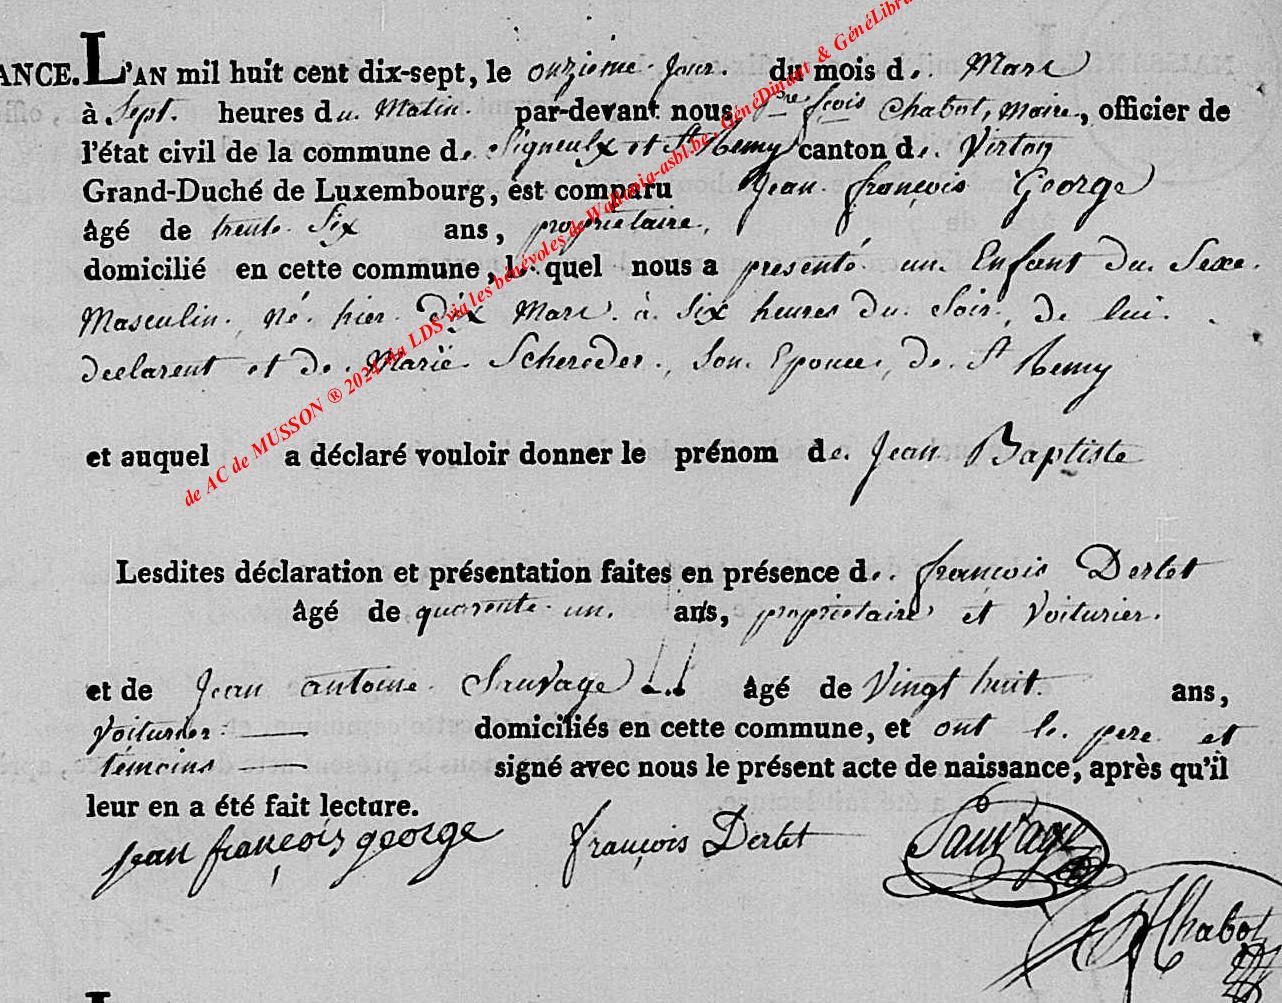 ANCE. L'AN mil huit cent dix-sept, le onzieme jour. du mois de. Mars
à Sept. heures du. Matin. par-devant nous Pre fçois Chabot, Maire, officier de
l'état civil de la commune de. Signeulx et St Remy canton de. Virton
Grand-Duché de Luxembourg, est comparu Jean. françois George
âgé de trente Six ans, propriétaire,
domicilié en cette commune, le quel nous a presenté un. Enfant du. Sexe.
Masculin. né. hier dix Mars. à Six heures du. Soir, de lui.
declarent et de. Marie. Schereder., Son. Epouse, de. St Remy
et auquel a déclaré vouloir donner le prénom de. Jean Baptiste
Lesdites déclaration et présentation faites en présence de. françois Derlet
âgé de quarente un. ans, propriétaire et Voiturier.
et de Jean antoine Sauvage âgé de Vingt huit. ans,
Voiturier domiciliés en cette commune, et ont le. pere et
témoins signé avec nous le présent acte de naissance, après qu'il
leur en a été fait lecture.
jean françois george françois Derlet Sauvage
Chabot
de AC de MUSSON ® 2024 via LDS via les bénévoles de Wallonia-asbl.be, GénéDinant & GénéLibra